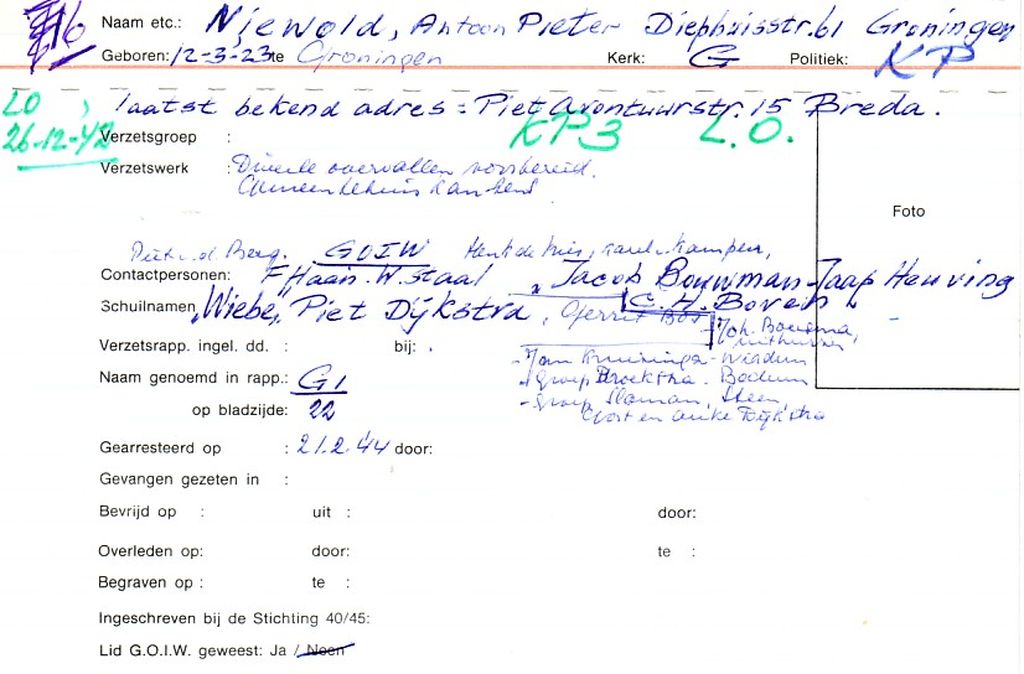 Naam etc.: Niewold, Antoon Pieter Diephuisstr. 61 Groningen
Geboren: 12-3-23 te Groningen Kerk: G Politiek: KP
LO , laatst bekend adres = Piet Avontuurstr. 15 Breda.
26-12-42 Verzetsgroep : KP3 L.O.
Verzetswerk : Diverse overvallen voorbereid.
Gemeentehuis
Foto
Piet v.d. Berg. GOIW Henk de Vries, Karel Kampen,
Contactpersonen: F. Haan. W. Staal Jacob Bouwman - Jaap Heuving
Schuilnamen "Wiebe", Piet Dijkstra, Gerrit Bos C.H. Boven
Joh. Boersma,
Verzetsrapp. ingel. dd. : bij: . Uithuizen
- Jan Kruizinga - Wirdum
Naam genoemd in rapp.: G1 - groep Broekstra. Bedum
op bladzijde: 22 - groep Sloman, Steen,
en Anike Dijkstra
Gearresteerd op : 21.2.'44 door:
Gevangen gezeten in :
Bevrijd op : uit : door:
Overleden op: door: te :
Begraven op : te :
Ingeschreven bij de Stichting 40/45:
Lid G.O.I.W. geweest: Ja / Neen